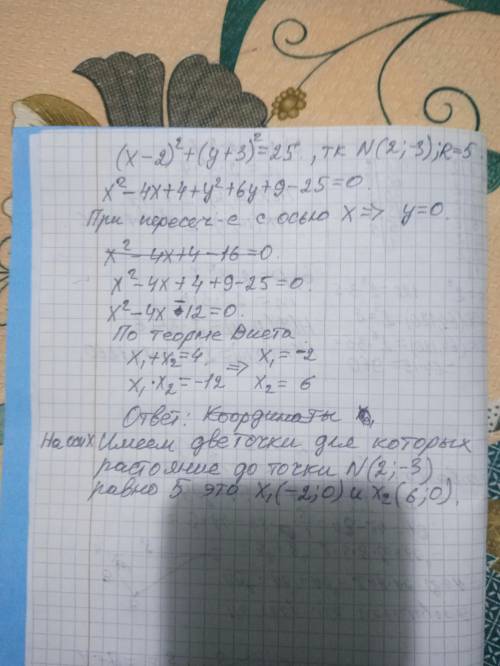 (x-2)²+(y+3)²=25, тк N(2;-3); R=5.
x²-4x+4+y²+6y+9-25=0.
При пересеч-е с осью X => y=0.
x²-4x+4-16=0.
x²-4x+4+9-25=0.
x²-4x-12=0.
По теорме Виета
x₁+x₂=4 => x₁=-2
x₁·x₂=-12 x₂= 6
Ответ: Координаты
На оси X Имеем две точки для которых
растояние до точки N(2;-3)
равно 5 это X₁(-2;0) и X₂(6;0).